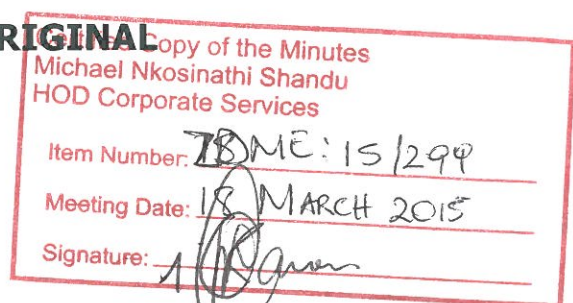 RIGINAL
Copy of the Minutes
Michael Nkosinathi Shandu
HOD Corporate Services
Item Number: ZDME: 15/299
Meeting Date: 18 MARCH 2015
Signature: